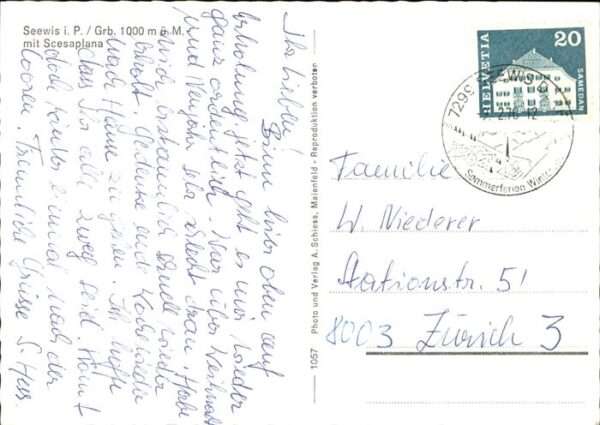 Seewis i. P. / Grb. 1000 m ü. M.
mit Scesaplana
Ihr Lieben!
Bin hier oben auf
Erholung jetzt geht es mir wieder
ganz ordentlich war über Weihnacht
und Neujahr sehr schlecht dran. Habe
mich erstaunlich schnell wieder
erholt. Gedenke Ende Woche wieder
nach Hause zu gehen. Ich hoffe
dass Ihr alle zweg seid. Kommt
doch einmal nach der
Freundliche Grüsse S.
1057 Photo und Verlag A. Schiess, Maienfeld - Reproduktion verboten
HELVETIA
20
SAMEDAN
7299 SEEWIS
Sommerferien
Familie
W. Niederer
Stationstr. 51
8003 Zürich 3